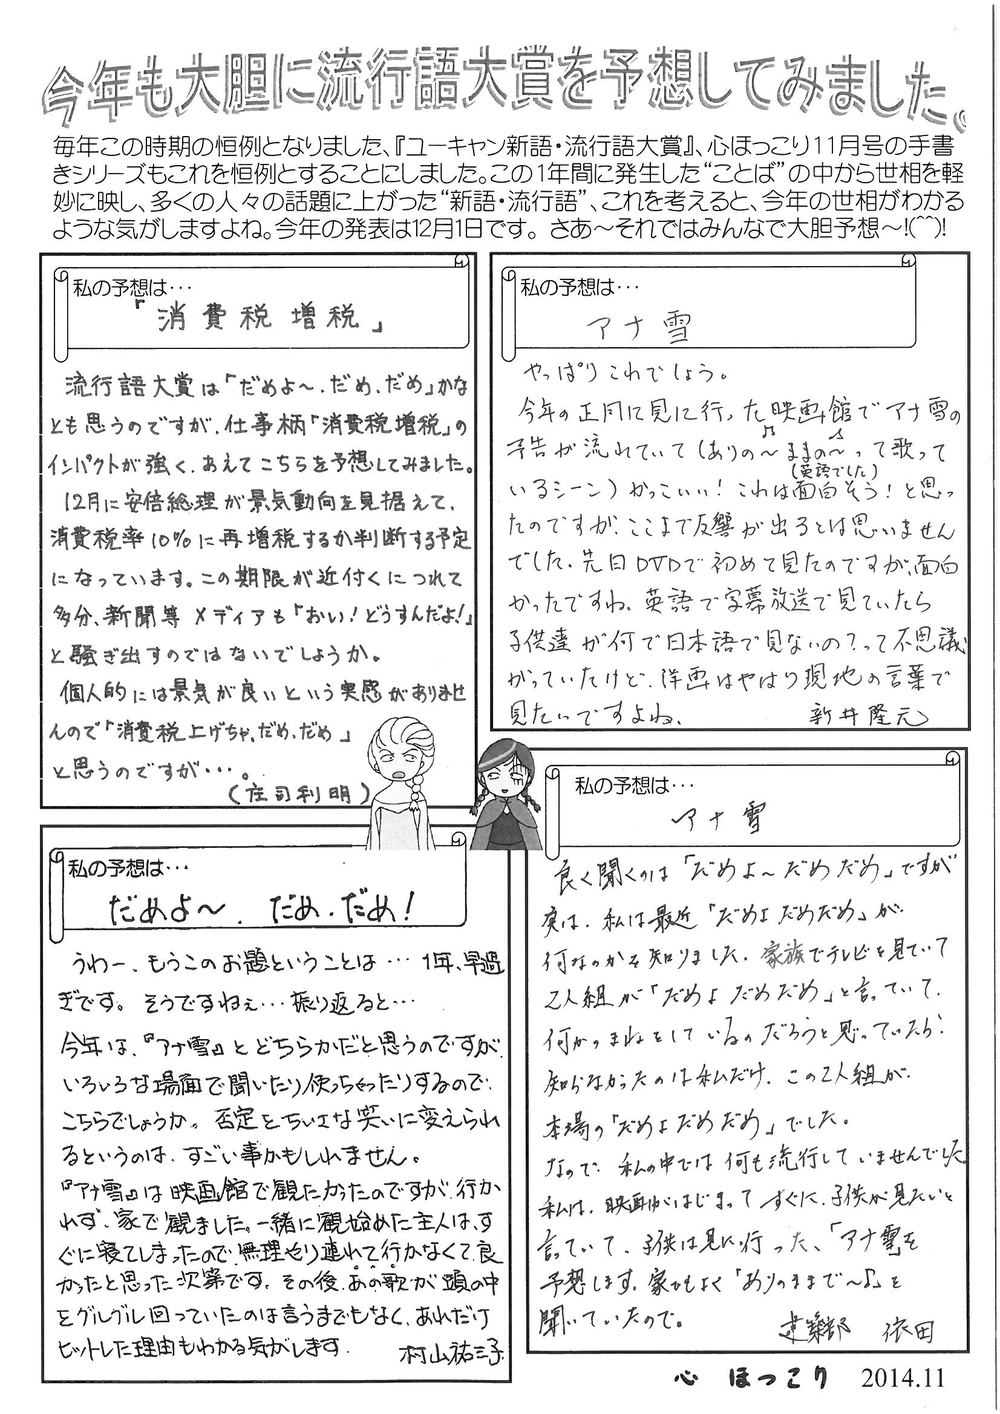 今年も大胆に流行語大賞を予想してみました。
毎年この時期の恒例となりました、『ユーキャン新語・流行語大賞』、心ほっこり11月号の手書
きシリーズもこれを恒例とすることにしました。この1年間に発生した“ことば”の中から世相を軽
妙に映し、多くの人々の話題に上がった“新語・流行語”、これを考えると、今年の世相がわかる
ような気がしますよね。今年の発表は12月1日です。さあ～それではみんなで大胆予想～!(⌒⌒)!
私の予想は…
「消費税増税」
流行語大賞は「だめよ～、だめ、だめ」かな
とも思うのですが、仕事柄「消費税増税」の
インパクトが強く、あえてこちらを予想してみました。
12月に安倍総理が景気動向を見据えて、
消費税率10%に再増税するか判断する予定
になっています。この期限が近付くにつれて
多分、新聞等メディアも「おい!どうすんだよ!」
と騒ぎ出すのではないでしょうか。
個人的には景気が良いという実感がありませ
んので「消費税上げちゃ、だめ、だめ」
と思うのですが…。
(庄司利明)
私の予想は…
アナ雪
やっぱりこれでしょう。
今年の正月に見に行った映画館でアナ雪の
予告が流れていて(ありの～♪ままの～♪って歌って
(英語でした)
いるシーン)かっこいい!これは面白そう!と思っ
たのですが、ここまで反響が出るとは思いません
でした、先日DVDで初めて見たのですが、面白
かったですね、英語で字幕放送で見ていたら
子供達が何で日本語で見ないの?って不思議
がっていたけど、洋画はやはり現地の言葉で
見たいですよね、
新井隆元
私の予想は…
だめよ～、だめ、だめ!
うわー、もうこのお題ということは…1年、早過
ぎです。そうですねぇ…振り返ると…
今年は、『アナ雪』とどちらかだと思うのですが
いろいろな場面で聞いたり使っちゃったりするので、
こちらでしょうか。否定をちいさな笑いに変えられ
るというのは、すごい事かもしれません。
『アナ雪』は映画館で観たかったのですが、行か
れず、家で観ました。一緒に観始めた主人は、す
ぐに寝てしまったので、無理やり連れて行かなくて、良
かったと思った次第です。その後、あの歌が頭の中
をグルグル回っていたのは言うまでもなく、あれだけ
ヒットした理由もわかる気がします。
村山祐三子
私の予想は…
アナ雪
良く聞くのは「だめよ～だめだめ」ですが
実は、私は最近「だめよだめだめ」が、
何なのかを知りました。家族でテレビを見ていて
2人組が「だめよだめだめ」と言っていて、
何かのまねをしているのだろうと思っていたら、
知らなかったのは私だけ、この2人組が、
本場の「だめよだめだめ」でした。
なので、私の中では何も流行していませんでした
私は、映画がはじまってすぐに、子供が見たいと
言っていて、子供は見に行った、「アナ雪」を
予想します。家でもよく「ありのままで～♪」を
聞いていたので。
建築部 依田
心 ほっこり 2014.11